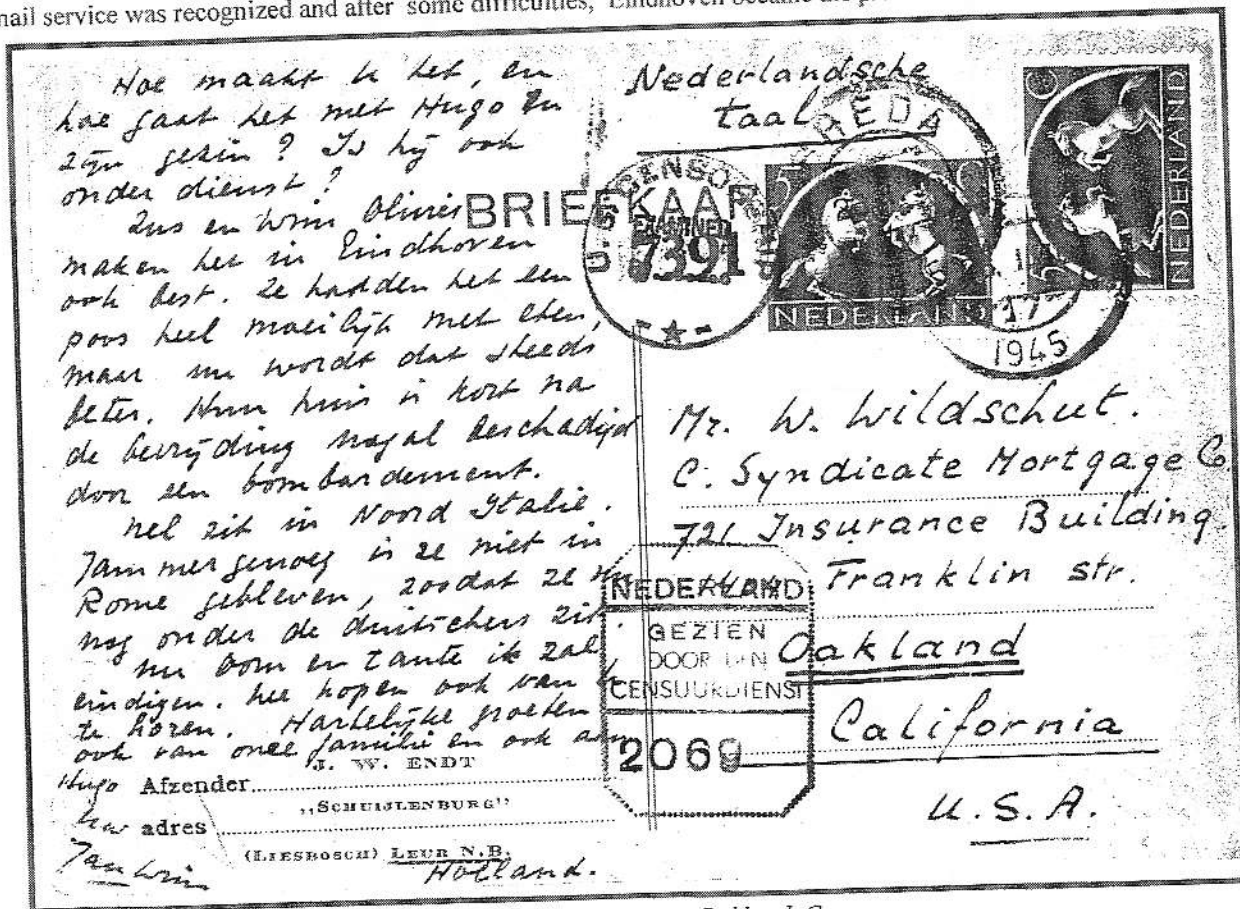 mail service was recognized and after some difficulties, Eindhoven became the
Hoe maakt U het, en
hoe gaat het met Hugo en
zijn gezin? Is hij ook
onder dienst?
Zus en Wim Olivier
maken het in Eindhoven
ook best. Ze hadden het een
poos heel moeilijk met eten,
maar nu wordt dat steeds
beter. Hun huis is kort na
de bevrijding nogal beschadigd
door een bombardement.
Nel zit in Noord Italië.
Jammergenoeg is ze niet in
Rome gebleven, zoodat ze nu
nog onder de duitschers zit.
Nu Oom en Tante ik zal
eindigen. We hopen ook van U
te hooren. Hartelijke groeten
ook van onze familie en ook aan
Hugo
Uw
Jan Wim
Afzender
J. W. ENDT
adres
„SCHUIJLENBURG"
(LIESBOSCH) LEUR N.B.
Holland.
Nederlandsche
taal
BRIEFKAART
U.S. CENSOR
EXAMINED
7391
BREDA
17
1945
5 C
NEDERLAND
5 C
NEDERLAND
Mr. W. Wildschut.
C. Syndicate Mortgage Co.
721 Insurance Building
Franklin str.
Oakland
California
U.S.A.
NEDERLAND
GEZIEN
DOOR DEN
CENSUURDIENST
2069